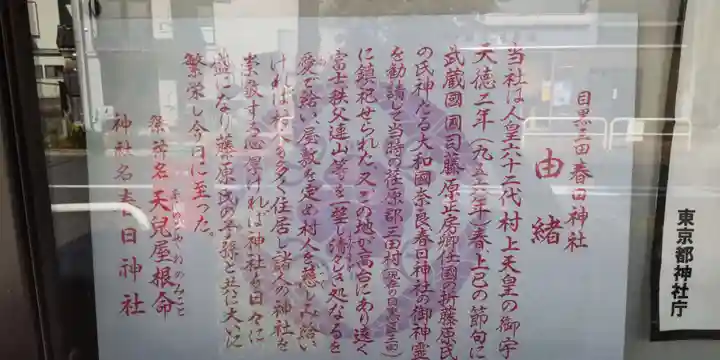 目黒三田 春日神社
由緒
当社は人皇六十二代村上天皇の御宇
天徳二年(九五六年)春上巳の節句に
武蔵國國司藤原正房卿任國の折藤原氏
の氏神たる大和國奈良春日神社の御神霊
を勧請して当時の荏原郡三田村(現在の目黒区三田)
に鎮祀せられた又この地が高台にあり遠く
富士秩父連山等を一望し清々しい処なるを
愛で給い屋敷を定め村人を慈しみ給い
ければ村人も多く住居し諸人の神社を
崇敬する心厚ければ神社も日々に
盛になり藤原氏の子孫と共に大いに
繁栄し今日に至った。
祭神名 天兒屋根命
あめのこやねのみこと
神社名 春日神社
東京都神社庁